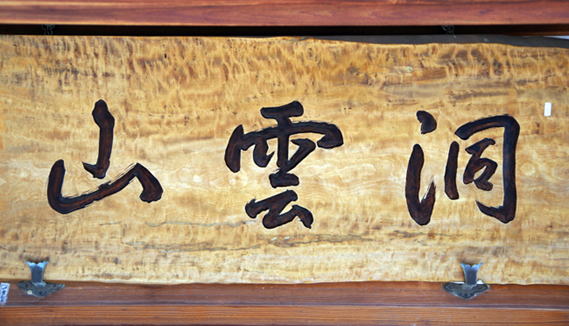 洞雲山